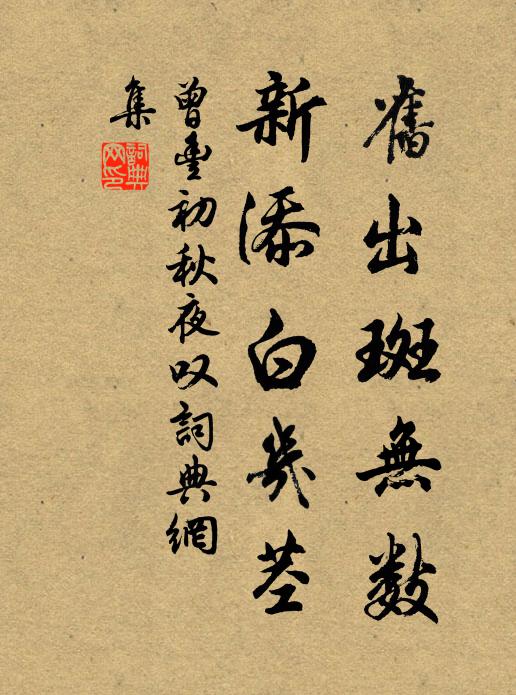 舊出斑無數
新添白幾莖
曾豐初秋夜叹詞典網
集
詞典網印